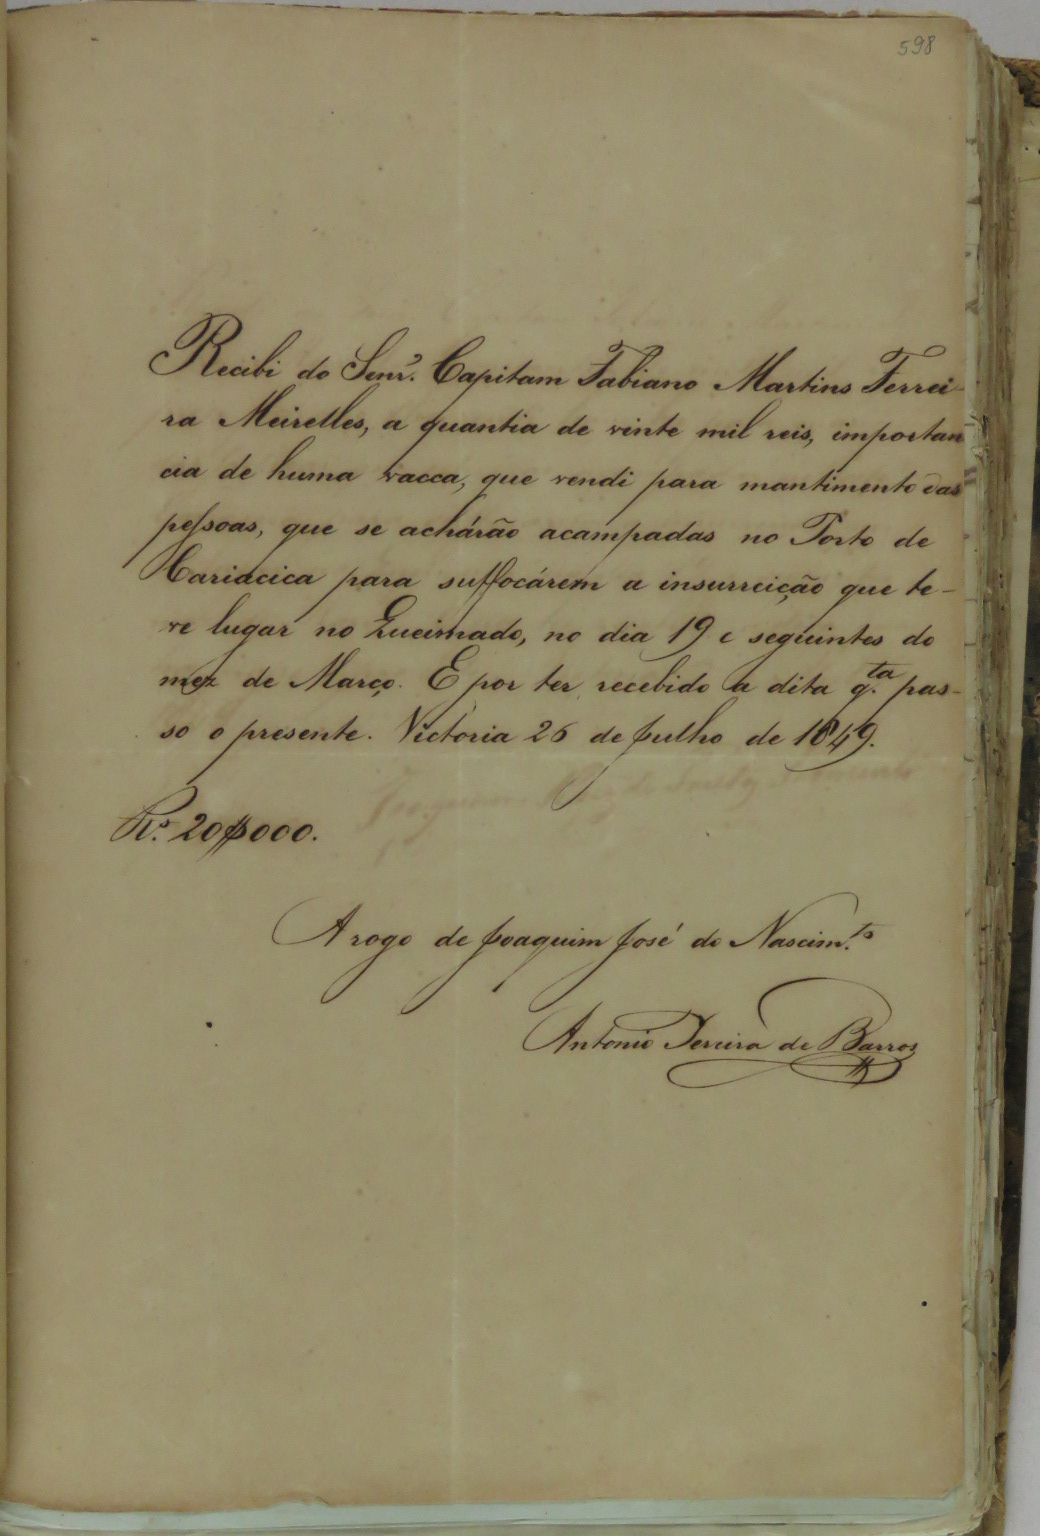 598
Recibi do Senr. Capitam Fabiano Martins Ferrei-
ra Meirelles, a quantia de vinte mil reis, importan
cia de huma vacca, que vendi para mantimento das
pessoas, que se achárão acampadas no Porto de
Cariacica para suffocárem a insurreição que te-
ve lugar no Queimado, no dia 19 e seguintes do
mez de Março. E por ter recebido a dita q.ta pas-
so o presente. Victória 26 de Julho de 1849.
Rs. 20$000.
A rogo de Joaquim José do Nascim.to
Antonio Pereira de Barros